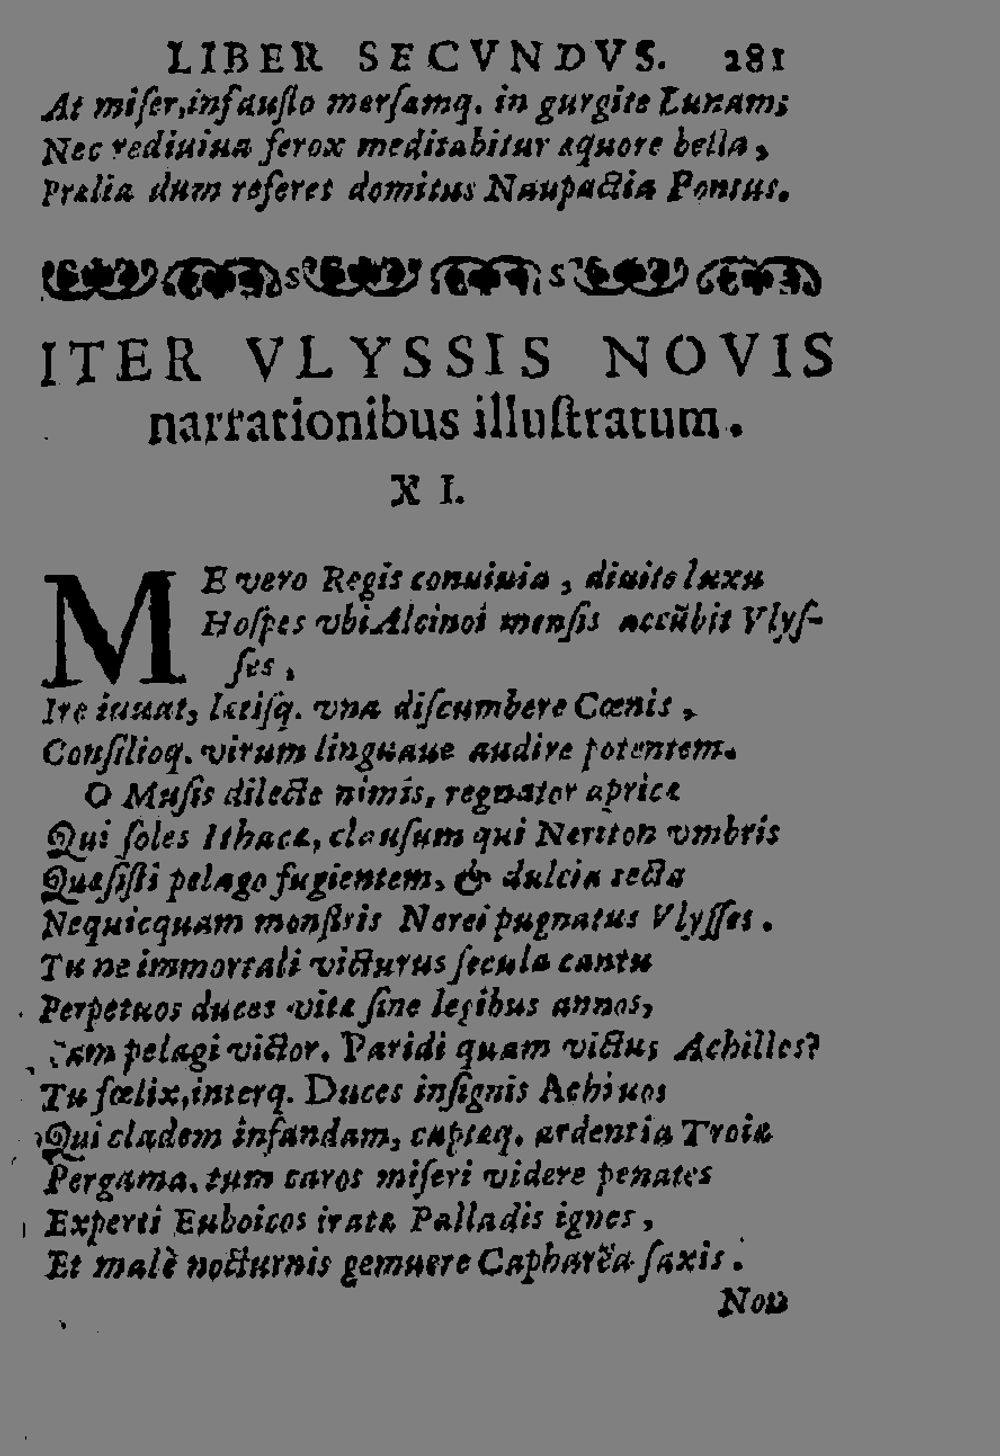 LIBER SECVNDVS. 281
At miſer, infauſto merſamq. in gurgite Lunam;
Nec rediuiua ferox meditabitur æquore bella,
Prælia dum referet domitus Naupactia Pontus.
ITER VLYSSIS NOVIS
narrationibus illuſtratum.
XI.
ME vero Regis conuiuia, diuite luxu
Hoſpes vbi Alcinoi menſis accũbit Vlyſ-
ſes,
Ire iuuat, lætiſq. vna diſcumbere Cœnis,
Conſilioq. virum linguaue audire potentem.
O Muſis dilecte nimis, regnator apricæ
Qui ſoles Ithacæ, clauſum qui Neriton vmbris
Quæſiſti pelago fugientem, & dulcia tecta
Nequicquam monſtris Nerei pugnatus Vlyſſes.
Tu ne immortali victurus ſecula cantu
Perpetuos duces vitæ ſine legibus annos,
Tam pelagi victor. Paridi quam victus Achilles?
Tu fœlix, interq. Duces inſignis Achiuos
Qui cladem infandam, captaq. ardentia Troiæ
Pergama, tum caros miſeri videre penates
Experti Euboicos iratæ Palladis ignes,
Et malè nocturnis gemuere Capharẽa ſaxis.
Non